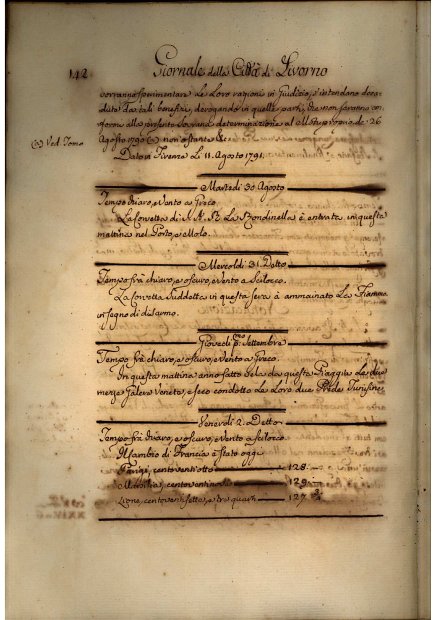 142
Giornale della Città di Livorno
vorranno sperimentare Le Loro ragioni in Giudizio, s'intendano deca=
duti da tali benefizi, derogando in quelle parti, che non saranno con=
formi alla presente Sovrana determinazione al Motuproprio de 26
Agosto 1790 (a) non ostante &c.
(a) Ved. Tomo
Dato in Firenze Li 11. Agosto 1791.
Martedì 30 Agosto
Tempo chiaro, e Vento a Greco.
La Corvetta di S. A. R. La Rondinella è entrata in questa
mattina nel Porto, e Molo.
Mercoldì 31 Detto
Tempo frà chiaro, e oscuro, e Vento a Scilocco.
La Corvetta Suddetta in questa sera à ammainato Le Fiamme
in segno di disarmo.
Giovedì p.º Settembre
Tempo frà chiaro, e oscuro, e Vento a Greco.
In questa mattina anno fatto Vela da questa Spiaggia Le due
mezze Galere Venete, e seco condotto Le Loro due Prede Tunisine
Venerdì 2. Detto
Tempo frà chiaro, e oscuro, e Vento a Scilocco
Il Cambio di Francia è stato oggi
Parigi, centoventotto 128. —
Marsilia, centoventinove 129 —
Lione, centoventisette, e tre quarti 127 3/4